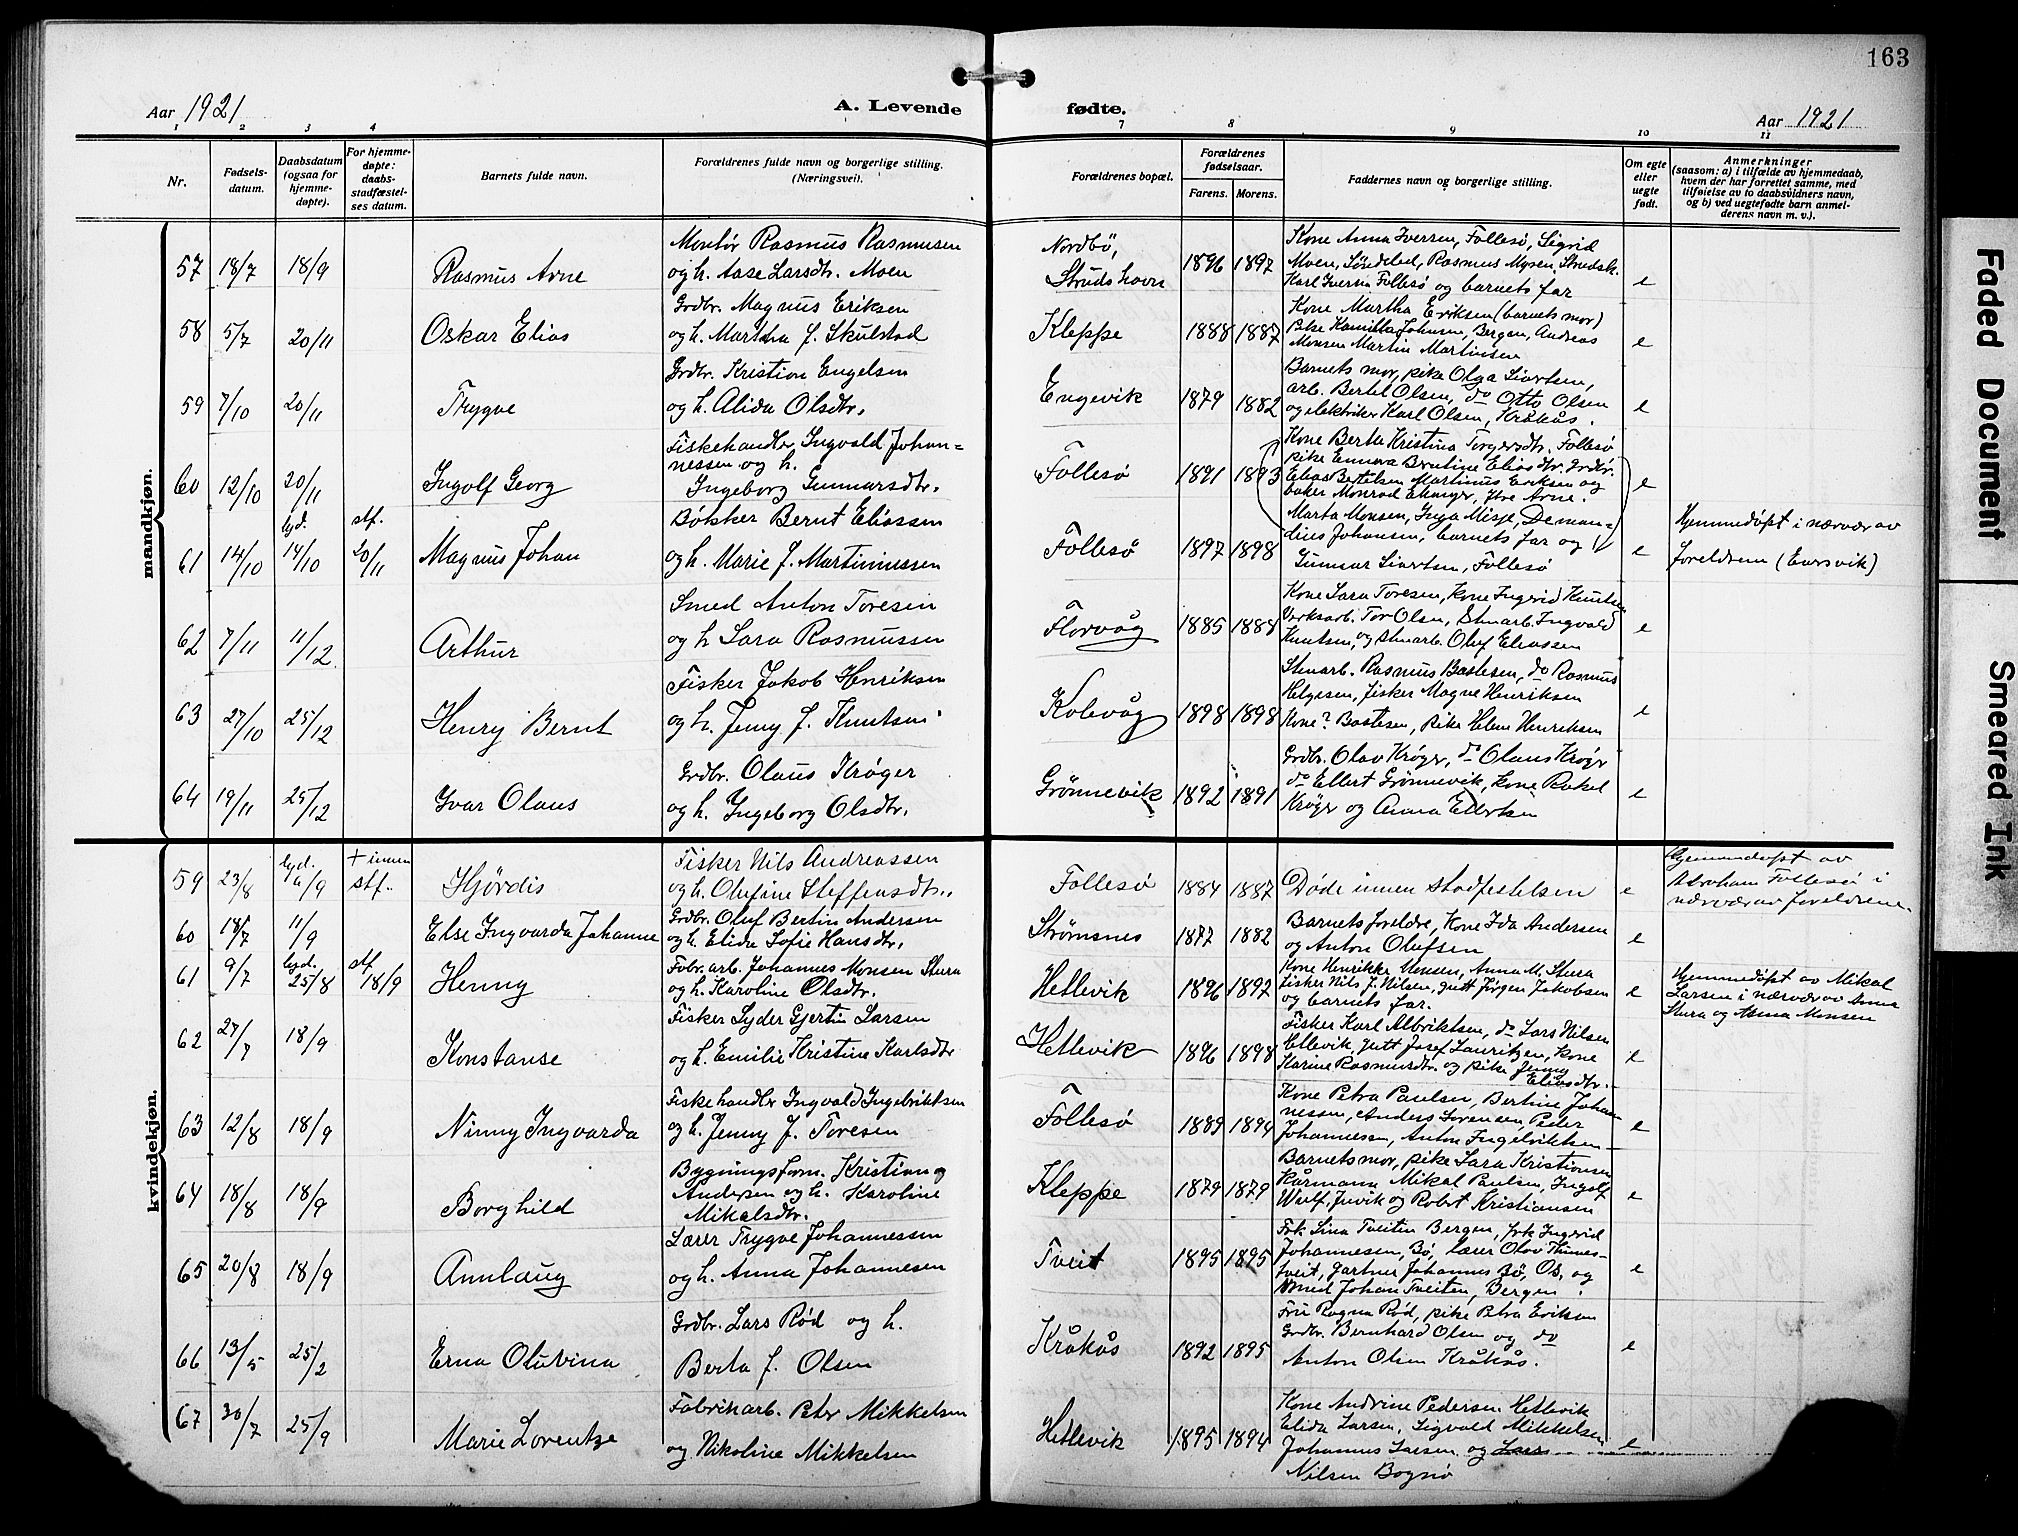 163
Aar 1921
A. Levende fødte.
Aar 1921
1 2 3 4 7 8 9 10 11
Nr.
Fødsels-
datum.
Daabsdatum
(ogsaa for
hjemme-
døpte).
For hjemme-
døpte:
daabs-
stadfæstel-
ses datum.
Barnets fulde navn.
Forældrenes fulde navn og borgerlige stilling.
(Næringsvei).
Forældrenes bopæl.
Forældrenes
fødselsaar.
Farens. Morens.
Faddernes navn og borgerlige stilling.
Om egte
eller
uegte
født.
Anmerkninger
(saasom: a) i tilfælde av hjemmedaab,
hvem der har forrettet samme, med
tilføielse av to daabsvidners navn,
og b) ved uegtefødte barn anmel-
derens navn m. v.).
mandkjøn.
57 18/7 18/9 Rasmus Arne
Montør Rasmus Rasmusen
og h. Aase Larsdtr. Moen
Nordbö,
Strudshavn
1896 1897
Kone Anna Iversen, Follesø, Sigrid
Moen, Söndelad, Rasmus Myren, Strudsh.
Karl Iversen Follesø og barnets far
e
58 5/7 20/11 Oskar Elias
Grdbr. Magnus Eriksen
og h. Martha f. Skulstad
Kleppe
1888 1887
Kone Martha Eriksen (barnets mor)
Pike Kamilla Johnsen, Bergen, Andreas
Monsen Martin Martinsen
e
59 7/10 20/11 Trygve
Grdbr. Kristian Engelsen
og h. Alida Olsdtr.
Engevik
1879 1882
Barnets mor, pike Olga Sivertsen,
arb. Bertel Olsen, do Otto Olsen
og elektriker Karl Olsen, Kråkås.
e
60 12/10 20/11 Ingolf Georg
Fiskehandler Ingvald Johan-
nessen og h.
Ingeborg Gunnarsdtr.
Follesö
1891 1893
Kone Berta Kristina Torgersdtr. Follesø
pike Emma Bertine Eliasdtr. Grdbr.
Elias Bertelsen Martinus Eriksen og
baker Monrad
e
61 14/10 hjd. 14/10 stf. 20/11 Magnus Johan
Bötsker Bernt Eliassen
og h. Marie f. Martinussen
Follesö
1897 1898
Marta Monsen, Inga Misje, Deman-
dius Johansen, barnets far og
Gunnar Sivertsen, Follesø
e
Hjemmedöpt i nærvær av
foreldrene (Eversvik)
62 7/11 11/12 Arthur
Smed Anton Toresen
og h Sara Rasmussen
Florvåg
1885 1888
Kone Sara Toresen, kone Ingerid Knutsen
Verksarb. Tor Olsen, Stenarb. Ingvald
Knutsen, og stenarb. Oluf Eliassen
e
63 27/10 25/12 Henry Bernt
Fisker Jakob Henriksen
og h. Jenny f. Knutsen
Kolevåg
1898 1898
Stenarb. Rasmus Bastesen, do Rasmus
Helgesen, fisker Magne Henriksen
Kone? Bastesen, pike Helene Henriksen
e
64 19/11 25/12 Ivar Olaus
Grdbr. Olaus Krøger
og h. Ingeborg Olsdtr.
Grönnevik
1892 1891
Grdbr. Olav Krøger, do Olaus Krøger
do Ellert Grönnevik, kone Rakel
Krøger og Anna Ellertsen
e
kvindekjøn.
59 23/8 hjd. 11/9 + innen stf. Hjördis
Fisker Nils Andreassen
og h. Olufine Steffensdtr.
Follesø
1884 1887
Døde innen stadfestelsen
e
Hjemmedöpt av
Abraham Follesø i
nærvær av foreldrene.
60 18/7 11/9 Else Ingvarda Johanne
Grdbr. Oluf Bertin Andersen
og h. Elida Sofie Hansdtr.
Strömsnes
1877 1882
Barnets foreldre, Kone Ida Andersen
og Anton Olufsen
e
61 9/7 hjd. 25/8 stf 18/9 Henny
Fabr. arb. Johannes Monsen Stura
og h. Karoline Olsdtr.
Hetlevik
1896 1892
Kone Henrikke Monsen, Anna M. Stura
fisker Nils J. Nilsen, gutt Jörgen Jakobsen
og barnets far.
e
Hjemmedöpt av Mikal
Larsen i nærvær av Anna
Stura og Anna Monsen
62 27/7 18/9 Konstanse
Fisker Syder Gjertin Larsen
og h. Emilie Kristine Karlsdtr
Hetlevik
1896 1898
Fisker Karl Albriktsen, do Lars Nilsen
Hetlevik, gutt Josef Lauritzen, kone
Karine Rasmusdtr. og pike Jenny
Eliasdtr.
e
63 12/8 18/9 Ninny Ingvarda
Fiskehandler Ingvald Ingebriktsen
og h. Jenny f. Toresen
Follesö
1889 1894
Kone Petra Paulsen, Bertine Johan-
nessen, Anders Sorensen, Peder
Johannessen, Anton Ingebriktsen
e
64 18/8 18/9 Borghild
Bygningsform. Kristian
Andersen og h. Karoline
Mikalsdtr.
Kleppe
1879 1879
Barnets mor, pike Sara Kristiansen
Mikal Paulsen, Ingolf
og Robert Kristiansen
e
65 20/8 18/9 Annlaug
Lærer Trygve Johannessen
og h. Anna Johannesen
Tveit
1895 1895
Frk Lina Tveiten Bergen, frk Ingerid
Johannesen, Bö, lærer Olav Thunes-
tveit, gartner Johannes Bö, Os, og
Johan Tveiten, Bergen.
e
66 13/5 25/2 Erna Oluvina
Grdbr. Lars Rød og h.
Berta f. Olsen
Kråkås
1892 1895
Fru Ragna Rød, pike Petra Eriksen
Grdbr. Bernhard Olsen og do
Anton Olsen Kråkås.
e
67 30/7 25/9 Marie Lorentze
Fabrikarb. Peter Mikkelsen
og Nikoline Mikkelsen
Hetlevik
1895 1894
Kone Andrine Pedersen Hetlevik
Elida Larsen, Sigvald Mikkelsen
Johannes Larsen og Lars
Nilsen Bogsnø
e
Faded Document
Smeared Ink